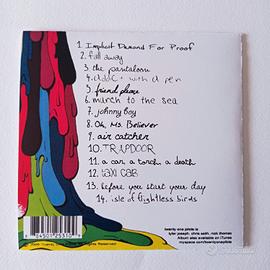 1. Implicit Demand For Proof
2. fall away
3. the pantaloon
4. addict with a pen
5. friend please
6. march to the sea
7. johnny boy
8. Oh, Ms. Believer
9. air catcher
10. TRAPDOOR
11. a car, a torch, a death
12. taxi cab
13. before you start your day
14. isle of flightless birds
twenty one pilots is
tyler joseph, chris salih, nick thomas
Album also available on iTunes
myspace.com/twentyonepilots